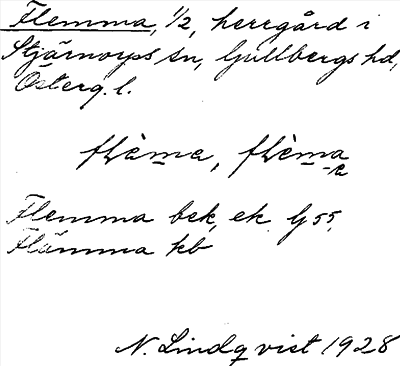 Flemma, 1/2, herrgård i
Stjärnorps sn, Gullbergs hd,
Österg. l.
flèma, flèma
-a
Flemma bek, ek. G 55,
Flämma kb
N. Lindqvist 1928